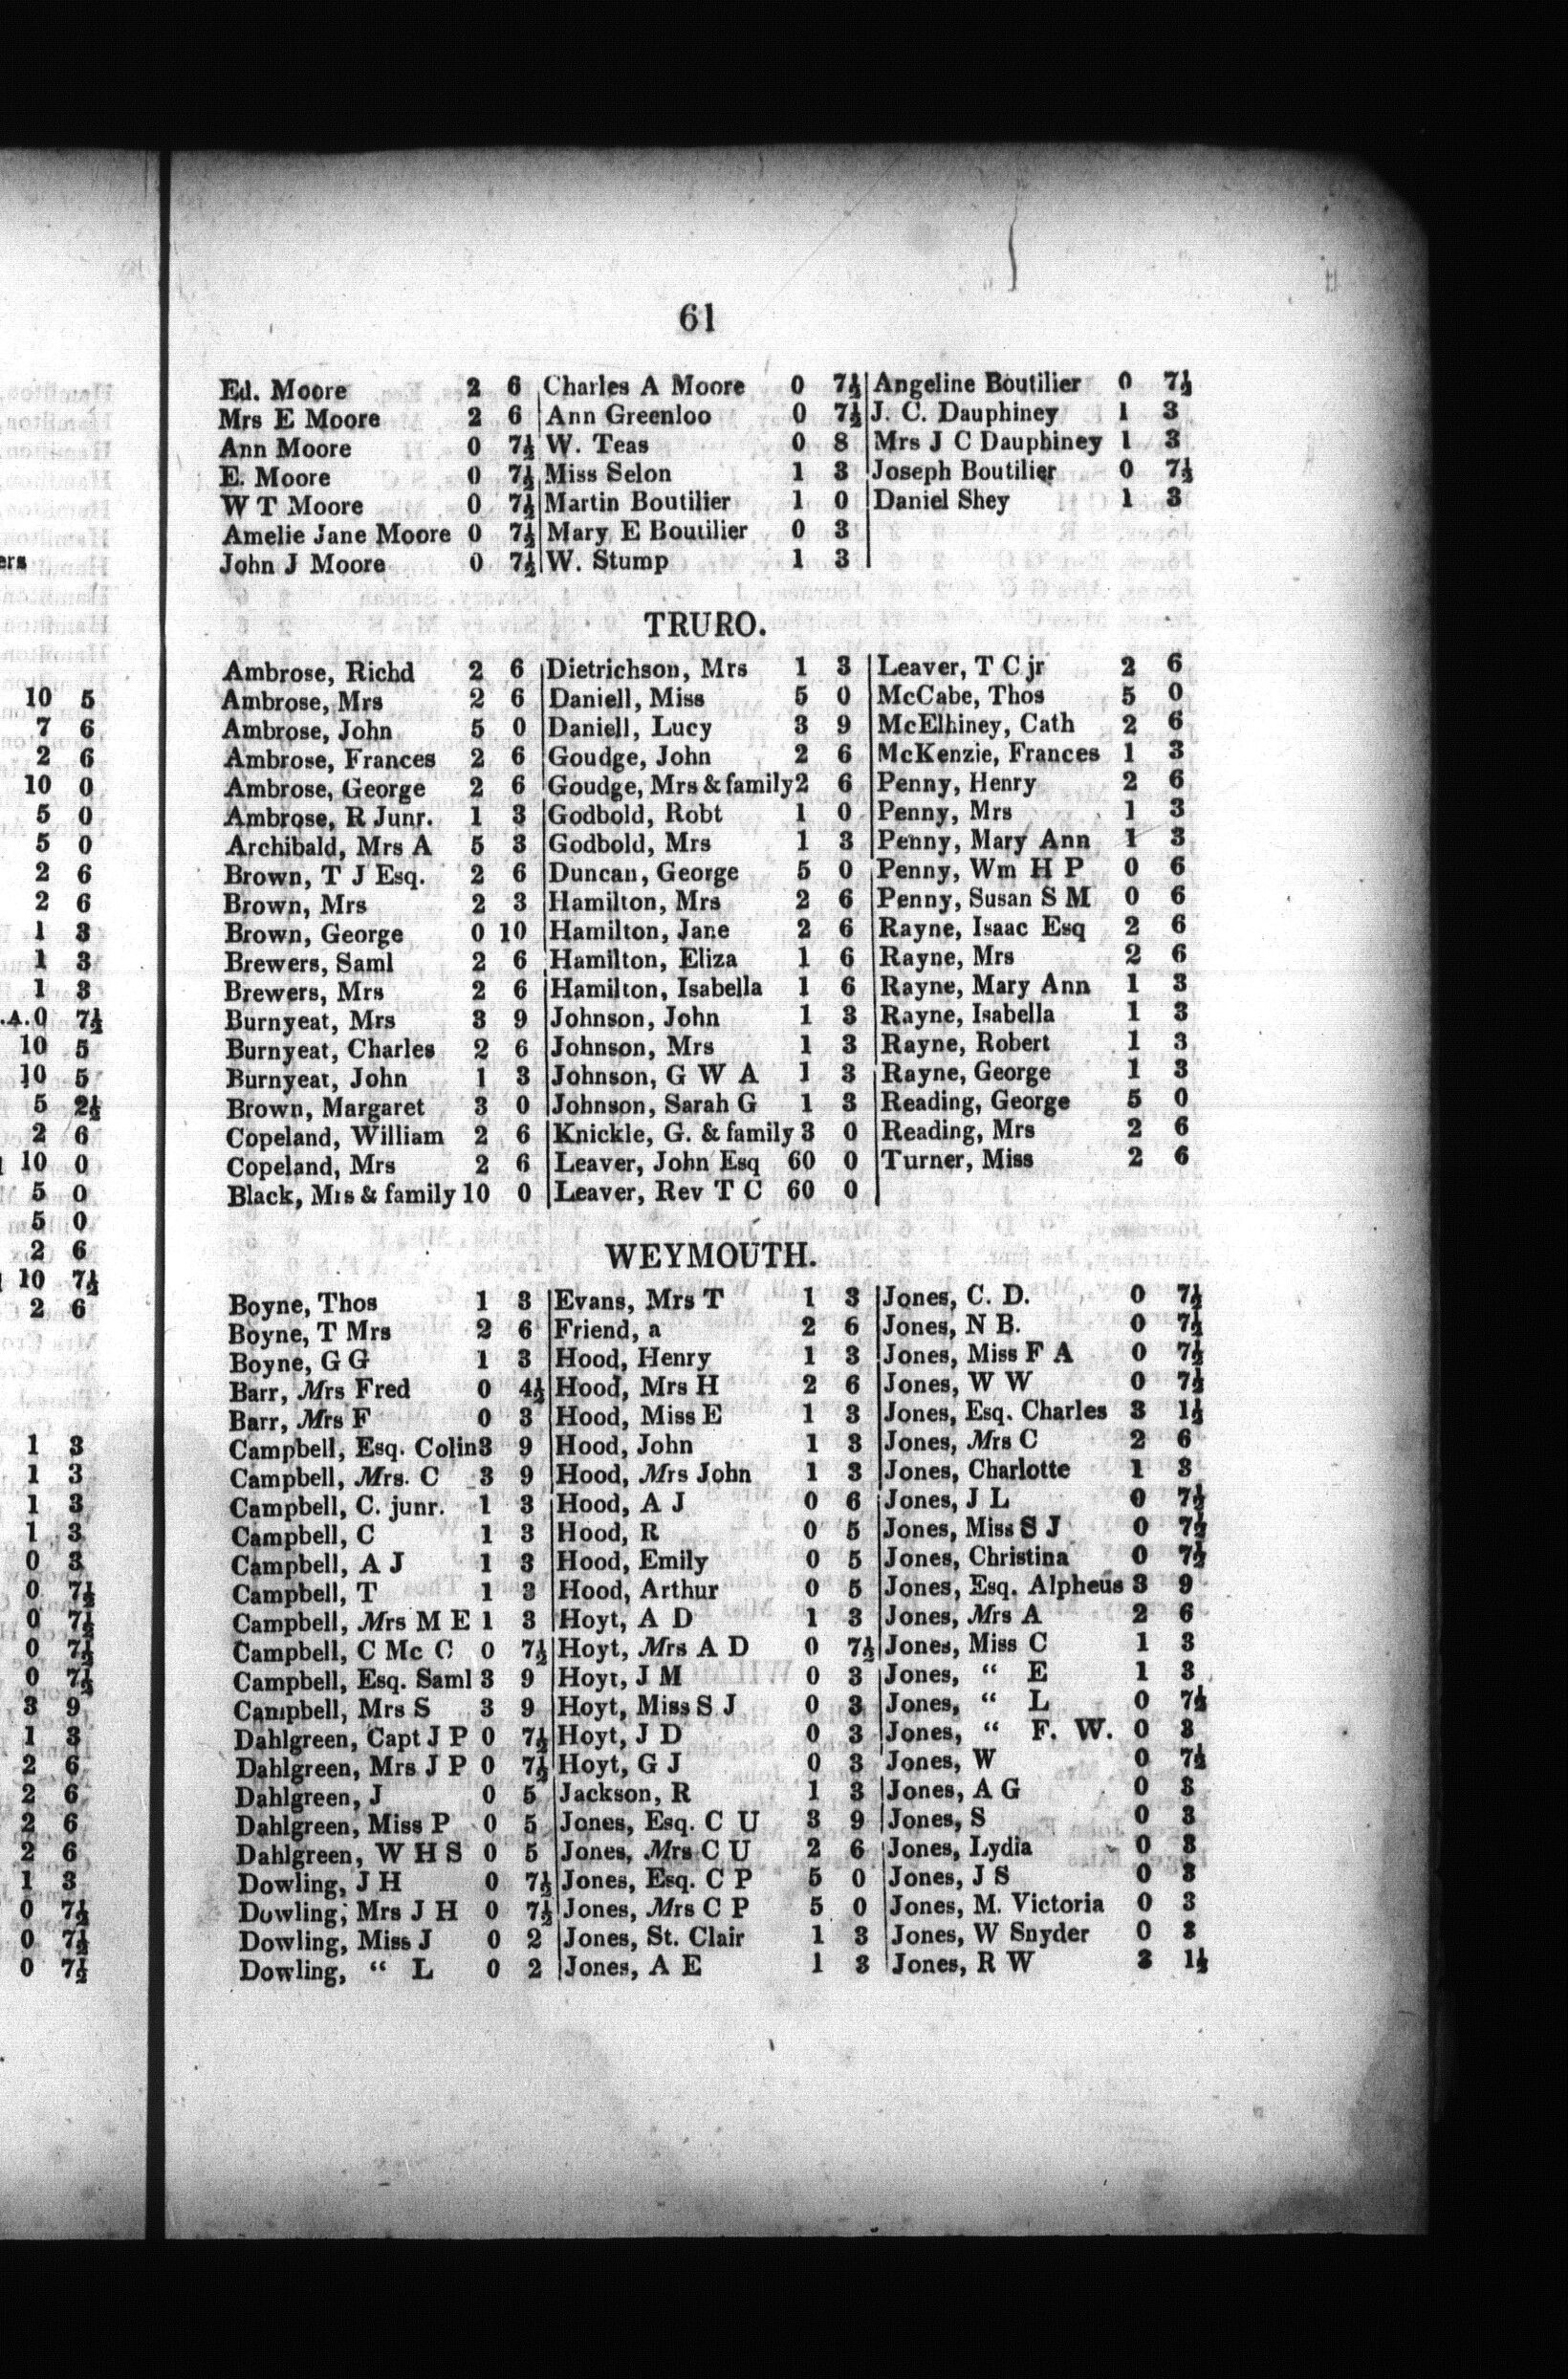 ers
10 5
7 6
2 6
10 0
5 0
5 0
2 6
2 6
1 3
1 3
1 3
.A.0 7½
10 5
10 5
5 2½
2 6
10 0
5 0
5 0
2 6
10 7½
2 6
1 3
1 3
1 3
1 3
0 3
0 7½
0 7½
0 7½
0 7½
3 9
1 3
2 6
2 6
2 6
2 6
1 3
0 7½
0 7½
0 7½
61
Ed. Moore 2 6
Mrs E Moore 2 6
Ann Moore 0 7½
E. Moore 0 7½
W T Moore 0 7½
Amelie Jane Moore 0 7½
John J Moore 0 7½
Charles A Moore 0 7½
Ann Greenloo 0 7½
W. Teas 0 8
Miss Selon 1 3
Martin Boutilier 1 0
Mary E Boutilier 0 3
W. Stump 1 3
Angeline Boutilier 0 7½
J. C. Dauphiney 1 3
Mrs J C Dauphiney 1 3
Joseph Boutilier 0 7½
Daniel Shey 1 3
TRURO.
Ambrose, Richd 2 6
Ambrose, Mrs 2 6
Ambrose, John 5 0
Ambrose, Frances 2 6
Ambrose, George 2 6
Ambrose, R Junr. 1 3
Archibald, Mrs A 5 3
Brown, T J Esq. 2 6
Brown, Mrs 2 3
Brown, George 0 10
Brewers, Saml 2 6
Brewers, Mrs 2 6
Burnyeat, Mrs 3 9
Burnyeat, Charles 2 6
Burnyeat, John 1 3
Brown, Margaret 3 0
Copeland, William 2 6
Copeland, Mrs 2 6
Black, Mrs & family 10 0
Dietrichson, Mrs 1 3
Daniell, Miss 5 0
Daniell, Lucy 3 9
Goudge, John 2 6
Goudge, Mrs & family 2 6
Godbold, Robt 1 0
Godbold, Mrs 1 3
Duncan, George 5 0
Hamilton, Mrs 2 6
Hamilton, Jane 2 6
Hamilton, Eliza 1 6
Hamilton, Isabella 1 6
Johnson, John 1 3
Johnson, Mrs 1 3
Johnson, G W A 1 3
Johnson, Sarah G 1 3
Knickle, G. & family 3 0
Leaver, John Esq 60 0
Leaver, Rev T C 60 0
Leaver, T C jr 2 6
McCabe, Thos 5 0
McElhiney, Cath 2 6
McKenzie, Frances 1 3
Penny, Henry 2 6
Penny, Mrs 1 3
Penny, Mary Ann 1 3
Penny, Wm H P 0 6
Penny, Susan S M 0 6
Rayne, Isaac Esq 2 6
Rayne, Mrs 2 6
Rayne, Mary Ann 1 3
Rayne, Isabella 1 3
Rayne, Robert 1 3
Rayne, George 1 3
Reading, George 5 0
Reading, Mrs 2 6
Turner, Miss 2 6
WEYMOUTH.
Boyne, Thos 1 3
Boyne, T Mrs 2 6
Boyne, G G 1 3
Barr, Mrs Fred 0 4½
Barr, Mrs F 0 3
Campbell, Esq. Colin 3 9
Campbell, Mrs. C 3 9
Campbell, C. junr. 1 3
Campbell, C 1 3
Campbell, A J 1 3
Campbell, T 1 3
Campbell, Mrs M E 1 3
Campbell, C Mc C 0 7½
Campbell, Esq. Saml 3 9
Campbell, Mrs S 3 9
Dahlgreen, Capt J P 0 7½
Dahlgreen, Mrs J P 0 7½
Dahlgreen, J 0 5
Dahlgreen, Miss P 0 5
Dahlgreen, W H S 0 5
Dowling, J H 0 7½
Dowling, Mrs J H 0 7½
Dowling, Miss J 0 2
Dowling, “ L 0 2
Evans, Mrs T 1 3
Friend, a 2 6
Hood, Henry 1 3
Hood, Mrs H 2 6
Hood, Miss E 1 3
Hood, John 1 3
Hood, Mrs John 1 3
Hood, A J 0 6
Hood, R 0 5
Hood, Emily 0 5
Hood, Arthur 0 5
Hoyt, A D 1 3
Hoyt, Mrs A D 0 7½
Hoyt, J M 0 3
Hoyt, Miss S J 0 3
Hoyt, J D 0 3
Hoyt, G J 0 3
Jackson, R 1 3
Jones, Esq. C U 3 9
Jones, Mrs C U 2 6
Jones, Esq. C P 5 0
Jones, Mrs C P 5 0
Jones, St. Clair 1 3
Jones, A E 1 3
Jones, C. D. 0 7½
Jones, N B. 0 7½
Jones, Miss F A 0 7½
Jones, W W 0 7½
Jones, Esq. Charles 3 1½
Jones, Mrs C 2 6
Jones, Charlotte 1 3
Jones, J L 0 7½
Jones, Miss S J 0 7½
Jones, Christina 0 7½
Jones, Esq. Alpheus 3 9
Jones, Mrs A 2 6
Jones, Miss C 1 3
Jones, “ E 1 3
Jones, “ L 0 7½
Jones, “ F. W. 0 3
Jones, W 0 7½
Jones, A G 0 3
Jones, S 0 3
Jones, Lydia 0 3
Jones, J S 0 3
Jones, M. Victoria 0 3
Jones, W Snyder 0 3
Jones, R W 3 1½